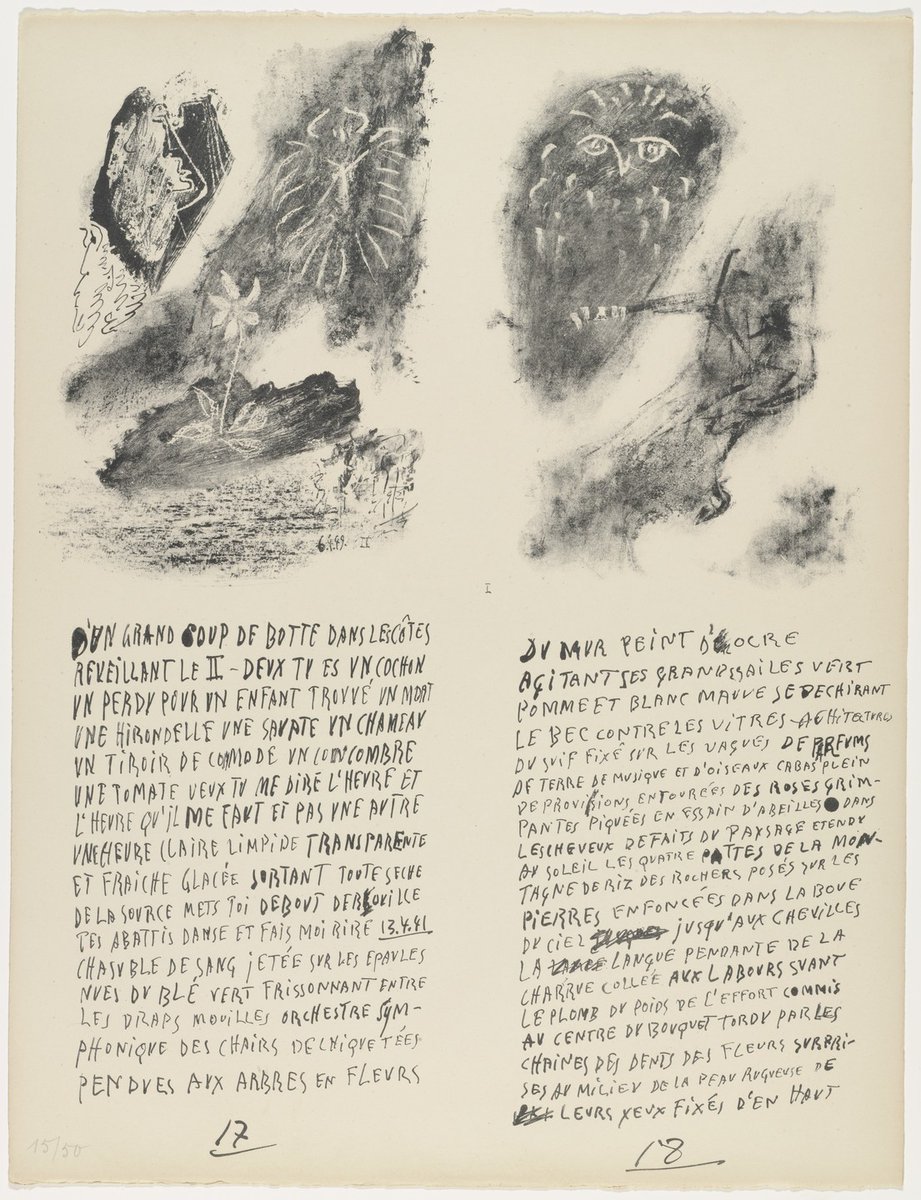 6.4.49. II
I
D'UN GRAND COUP DE BOTTE DANS LES CÔTES
REVEILLANT LE II - DEUX TU ES UN COCHON
UN PERDU POUR UN ENFANT TROUVÉ UN MORT
UNE HIRONDELLE UNE SAVATE UN CHAMEAU
UN TIROIR DE COMMODE UN CONCOMBRE
UNE TOMATE VEUX TU ME DIRE L'HEURE ET
L'HEURE QU'IL ME FAUT ET PAS UNE AUTRE
UNE HEURE CLAIRE LIMPIDE TRANSPARENTE
ET FRAICHE GLACÉE SORTANT TOUTE SECHE
DE LA SOURCE METS TOI DEBOUT DEROUILLE
TES ABATTIS DANSE ET FAIS MOI RIRE 13.4.41
CHASUBLE DE SANG JETÉE SUR LES EPAULES
NUES DU BLÉ VERT FRISSONNANT ENTRE
LES DRAPS MOUILLES ORCHESTRE SYM-
PHONIQUE DES CHAIRS DECHIQUETÉES
PENDUES AUX ARBRES EN FLEURS
17
DU MUR PEINT D'OCRE
AGITANT SES GRANDES AILES VERT
POMME ET BLANC MAUVE SE DECHIRANT
LE BEC CONTRE LES VITRES ACHITECTURES
DU SUIF FIXÉ SUR LES VAGUES DE PARFUMS
DE TERRE DE MUSIQUE ET D'OISEAUX CABAS PLEIN
DE PROVISIONS ENTOURÉES DES ROSES GRIM-
PANTES PIQUÉES EN ESSAIN D'ABEILLES DANS
LES CHEVEUX DEFAITS DU PAYSAGE ETENDU
AU SOLEIL LES QUATRE PATTES DE LA MON-
TAGNE DE RIZ DES ROCHERS POSÉS SUR LES
PIERRES ENFONCÉES DANS LA BOUE
DU CIEL JUSQU'AUX CHEVILLES
LA LANGUE PENDANTE DE LA
CHARRUE COLLÉE AUX LABOURS SUANT
LE PLOMB DU POIDS DE L'EFFORT COMMIS
AU CENTRE DU BOUQUET TORDU PAR LES
CHAINES DES DENTS DES FLEURS SURPRI-
SES AU MILIEU DE LA PEAU RUGUEUSE DE
LEURS YEUX FIXÉS D'EN HAUT
18
15/50